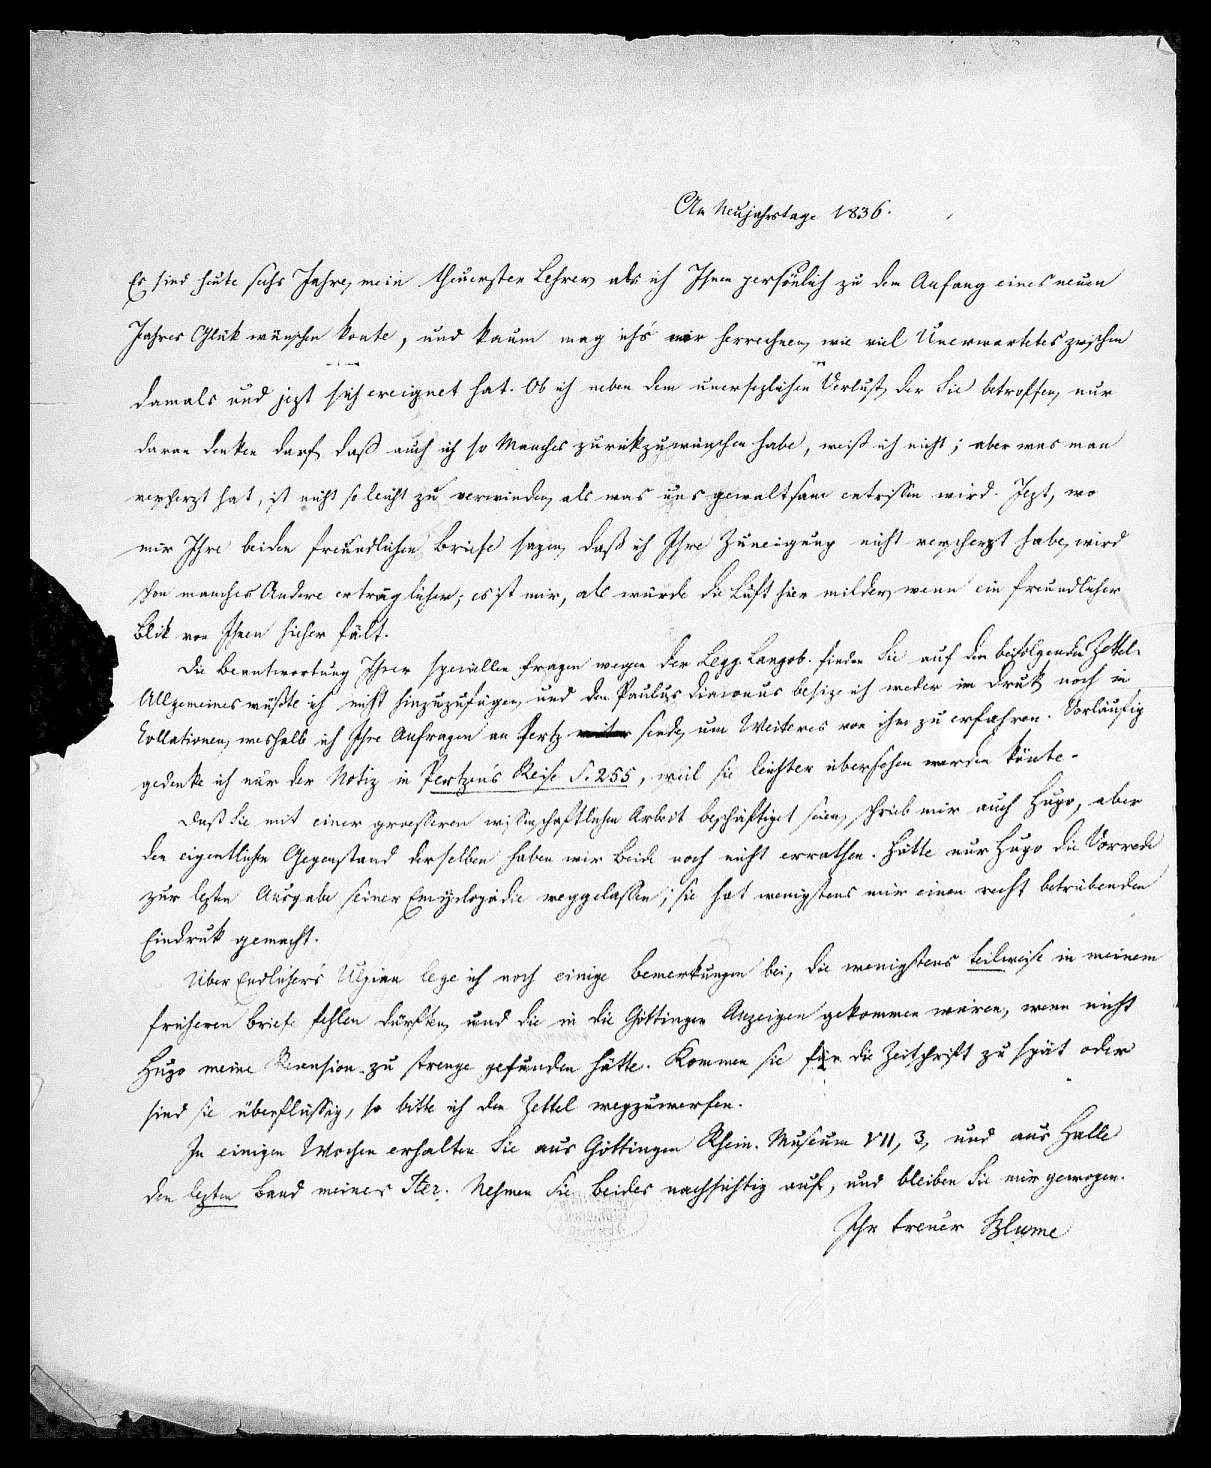 Am Neujahrstage 1836.
Es sind heute sechs Jahre, mein theuerster Lehrer, als ich Ihnen persönlich zu dem Anfang eines neuen
Jahres Glük wünschen konte, und kaum mag ich's mir herrechnen, wie viel Unerwartetes zwischen
damals und jezt sich ereignet hat. Ob ich neben dem unersezlichen Verlust, der Sie betroffen, nur
daran denken darf, daß auch ich so Manches zurükzuwünschen habe, weiß ich nicht; aber was man
verscherzt hat, ist nicht so leicht zu verwinden, als was uns gewaltsam entrissen wird. Jezt, wo
mir Ihre beiden freundlichen Briefe sagen, daß ich Ihre Zuneigung nicht verscherzt habe, wird
schon manches Andere erträglicher; es ist mir, als würde die Luft hier milder, wenn ein freundlicher
Blik von Ihnen hieher fält.
Die Beantwortung Ihrer speciellen Fragen wegen der Legg. Langob. finden Sie auf den beifolgenden Zettel.
Allgemeines wüßte ich nicht hinzuzufügen, und den Paulus Diaconus besize ich weder im Druk, noch in
Collationen, weshalb ich Ihre Anfragen an Pertz sende, um Weiteres von ihm zu erfahren. Vorläufig
gedenke ich nur der Notiz in Pertzens Reise S. 255, weil sie leichter übersehen werden könte.
Daß Sie mit einer groesseren wissenschaftlichen Arbeit beschäftiget seien, schrieb mir auch Hugo, aber
den eigentlichen Gegenstand derselben haben wir beide noch nicht errathen. Hätte nur Hugo die Vorrede
zur lezten Ausgabe seiner Encyclopädie weggelassen; sie hat wenigstens mir einen recht betrübenden
Eindruk gemacht.
Über Endlicher's Ulpian lege ich noch einige Bemerkungen bei, die wenigstens teilweise in meinem
früheren Briefe fehlen dürften, und die in die Göttinger Anzeigen gekommen wären, wenn nicht
Hugo meine Recension zu strenge gefunden hätte. Kommen sie für die Zeitschrift zu spät oder
sind sie überflüssig, so bitte ich den Zettel wegzuwerfen.
In einigen Wochen erhalten Sie aus Göttingen Rhein. Museum VII, 3, und aus Halle
den lezten Band meines Iter. Nehmen Sie beides nachsichtig auf, und bleiben Sie mir gewogen.
Ihr treuer Blume